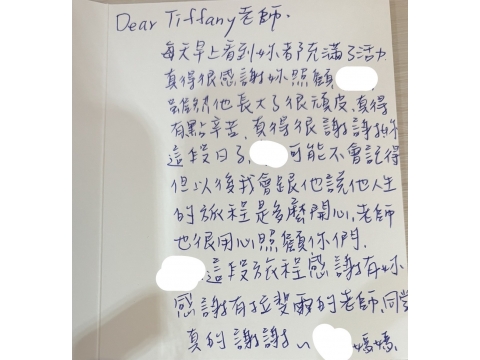 Dear Tiffany老師.
每天早上看到妳都充滿了活力
真得很感謝妳照顧
雖然他長大了很頑皮,真得
有點辛苦,真得很謝謝妳
這段日子,可能不會記得
但以後我會跟他說他人生
的旅程是多麼開心,老師
也很用心照顧你們.
這段旅程感謝有妳
感謝有拉斐爾的老師,同學
真的謝謝~ 媽媽